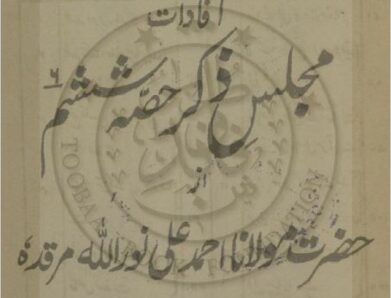 افادات
مجلسِ ذکر حصّہ ششم ۶
از
حضرت مولانا احمد علی نور اللہ مرقدہٗ
TOOBA